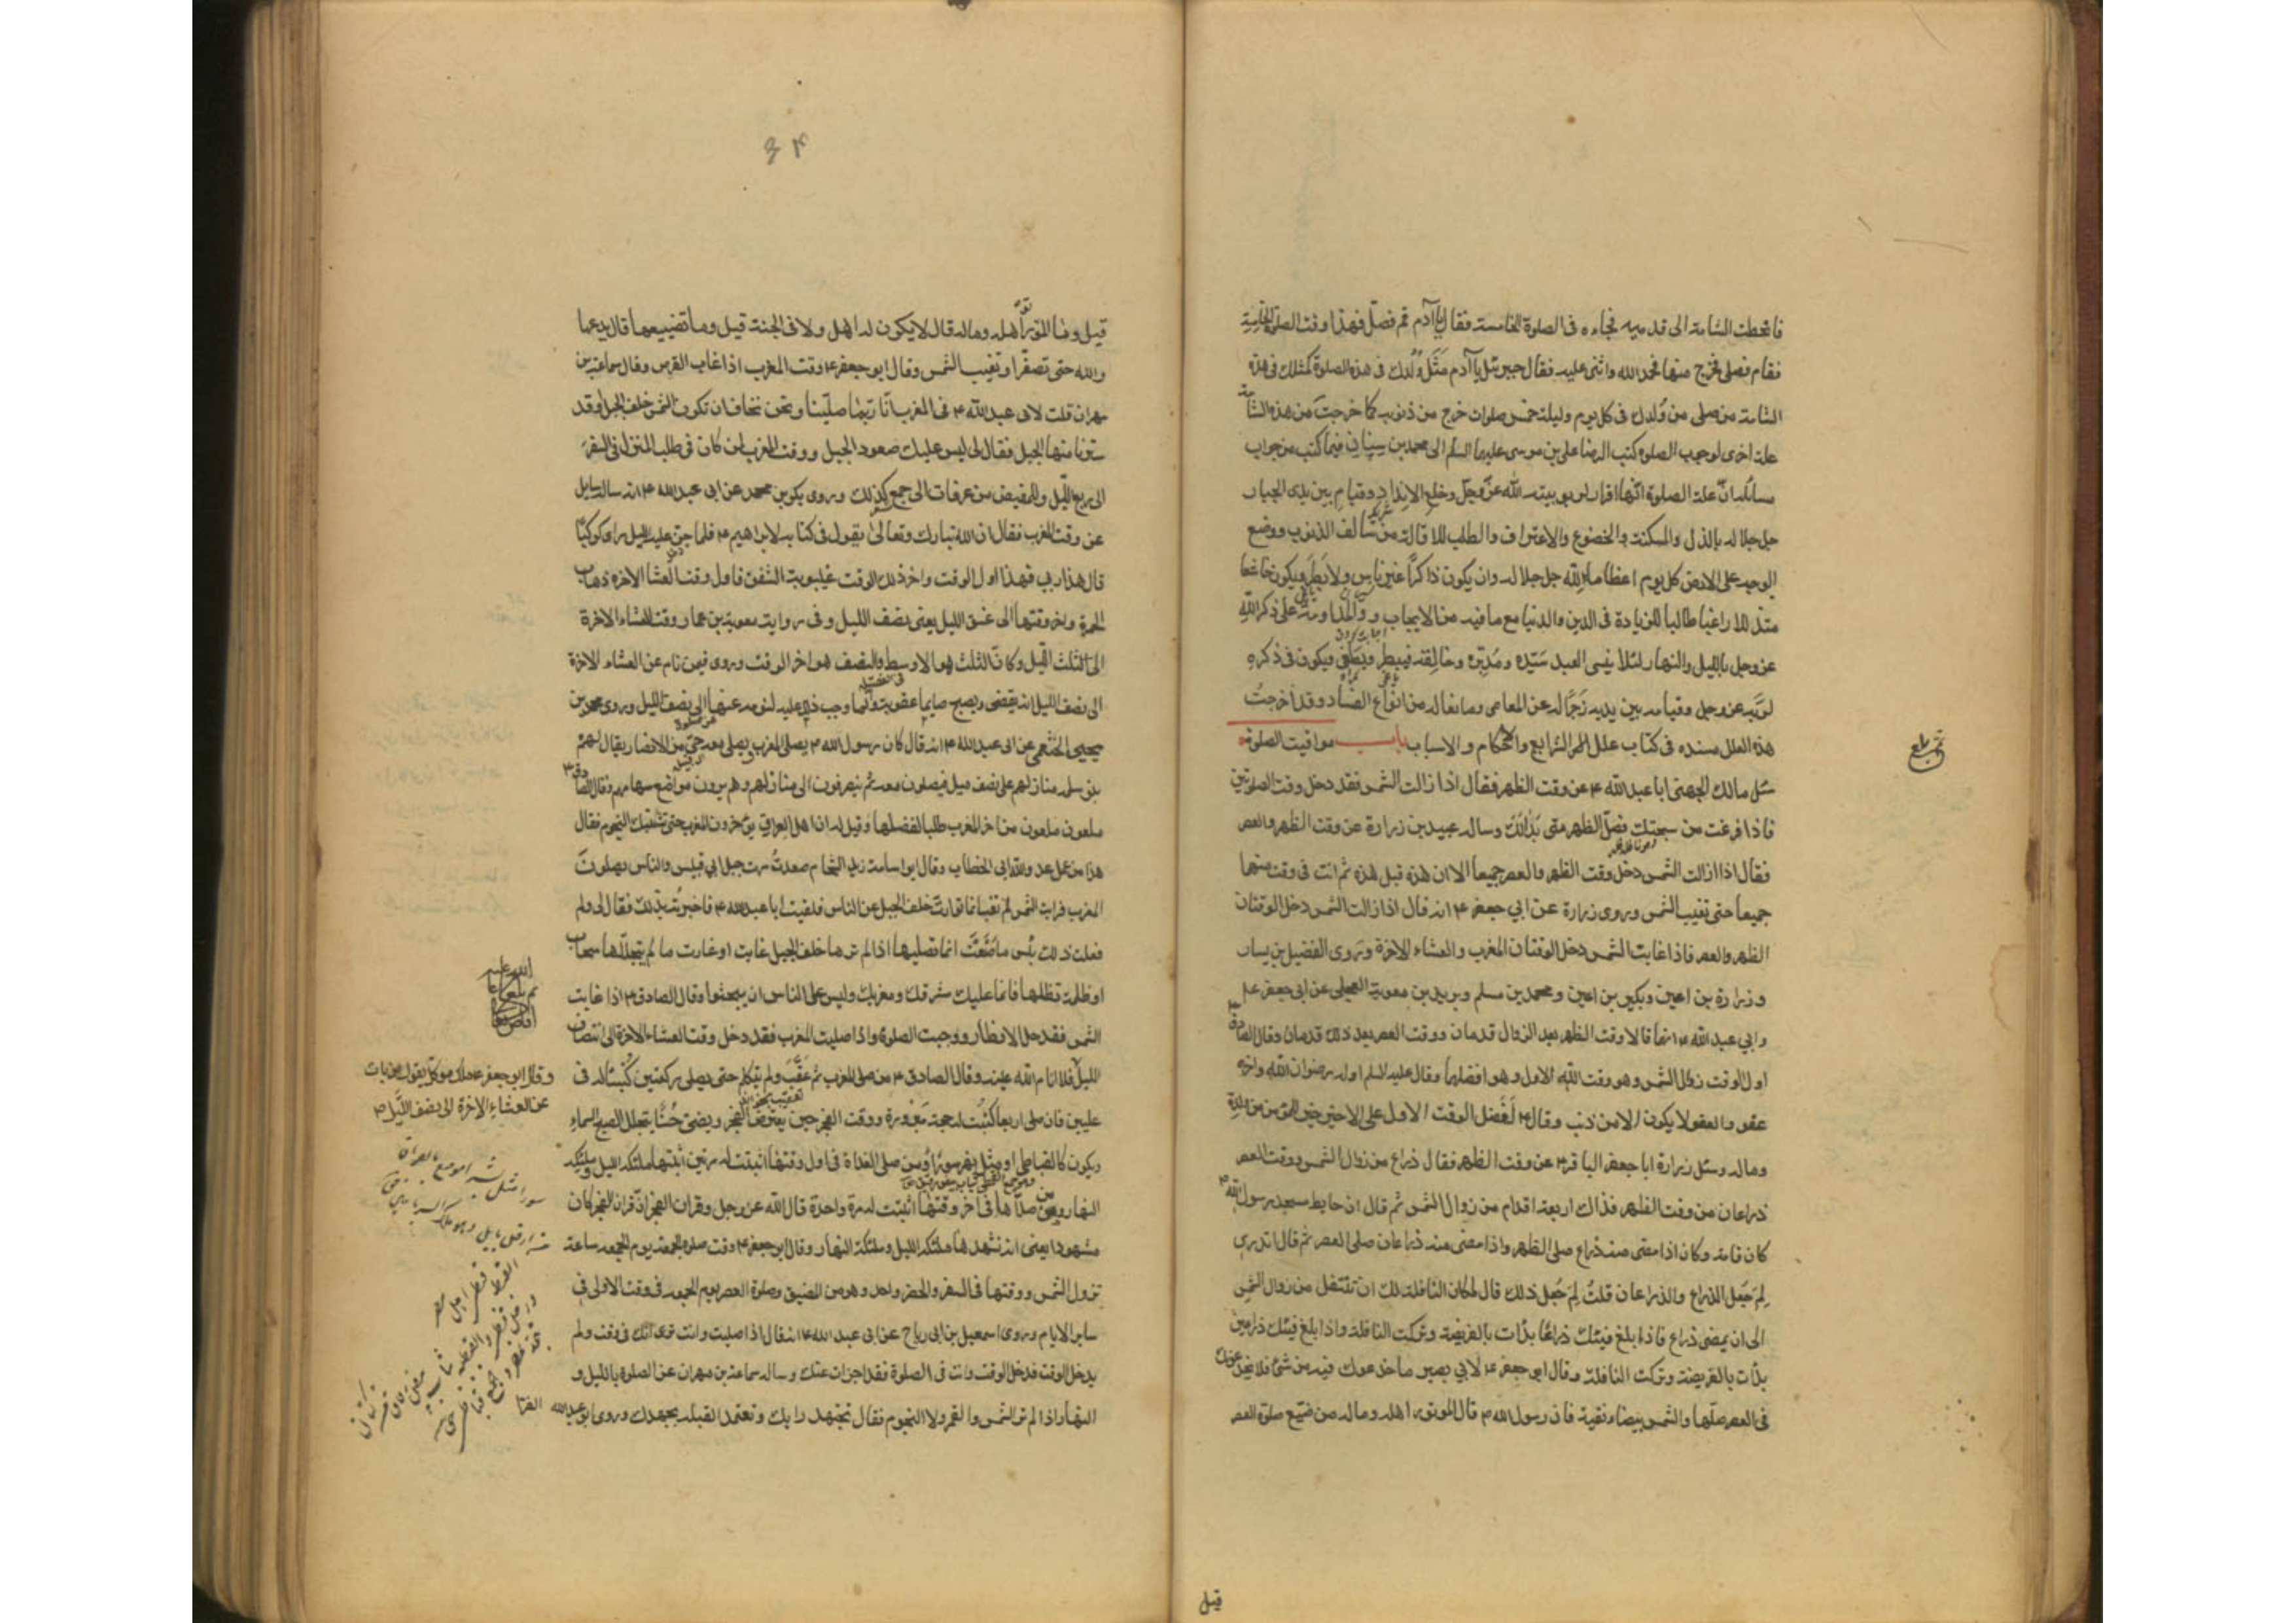 فانحطت الشامة الى قدميه فجاءه فى الصلوة الخامسة فقال يا آدم قم فصل فهذا وقت الصلوة الخامسة
فقام فصلى فخرج منها فحمد الله واثنى عليه فقال جبرئيل يا آدم مثل ولدك فى هذه الصلوة كمثلك فى هذه
الشامة من صلى من ولدك فى كل يوم وليلة خمس صلوات خرج من ذنوبه كما خرجت من هذه الشامة
علة اخرى لوجوب الصلوة كتب الرضا على بن موسى عليهما السلم الى محمد بن سنان فيما كتب من جواب
مسائله ان علة الصلوة انها اقرار لربوبيته لله عز وجل وخلع الانداد وقيام بين يدى الجبار
جل جلاله بالذل والمسكنة والخضوع والاعتراف والطلب للاقالة من سالف الذنوب ووضع
الوجه على الارض كل يوم اعظاما لله جل جلاله وان يكون ذاكرا غير ناس ولا بطر ويكون خاشعا
متذللا راغبا طالبا للزيادة فى الدين والدنيا مع ما فيه من الايجاب والمداومة على ذكر الله
عز وجل بالليل والنهار لئلا ينسى العبد سيده ومدبره وخالقه فيبطر ويطغى ويكون فى ذكره
لربه عز وجل وقيامه بين يديه زجرا له عن المعاصى ومانعا له من انواع الفساد وقد اخرجت
هذه العلل مسندة فى كتاب علل الشرايع والاحكام والاسباب باب مواقيت الصلوة
سئل مالك الجهنى ابا عبد الله ع عن وقت الظهر فقال اذا زالت الشمس فقد دخل وقت الصلوتين
فاذا فرغت من سبحتك فصل الظهر متى بدا لك وساله عبيد بن زرارة عن وقت الظهر والعصر
فقال اذا زالت الشمس دخل وقت الظهر والعصر جميعا الا ان هذه قبل هذه ثم انت فى وقت منهما
جميعا حتى تغيب الشمس وروى زرارة عن ابي جعفر ع انه قال اذا زالت الشمس دخل الوقتان
الظهر والعصر فاذا غابت الشمس دخل الوقتان المغرب والعشاء الاخرة وروى الفضيل بن يسار
وزرارة بن اعين وبكير بن اعين ومحمد بن مسلم وبريد بن معوية العجلى عن ابى جعفر
وابي عبد الله ع انهما قالا وقت الظهر بعد الزوال قدمان ووقت العصر بعد ذلك قدمان وقال الصادق ع
اول الوقت زوال الشمس وهو وقت الله الاول وهو افضلهما وقال عليه السلم اوله رضوان الله واخره
عفو والعفو لا يكون الا من ذنب وقال ع لفضل الوقت الاول على الاخر خير للمؤمن من ولده
وماله وسئل زرارة ابا جعفر الباقر ع عن وقت الظهر فقال ذراع من زوال الشمس ووقت العصر
ذراعان من وقت الظهر فذاك اربعة اقدام من زوال الشمس ثم قال ان حايط مسجد رسول الله ص
كان قامة وكان اذا مضى منه ذراع صلى الظهر واذا مضى منه ذراعان صلى العصر ثم قال اتدرى
لم جعل الذراع والذراعان قلت لم جعل ذلك قال لمكان النافلة لك ان تتنفل من زوال الشمس
الى ان يمضى ذراع فاذا بلغ فيئك ذراعا بدات بالفريضة وتركت النافلة واذا بلغ فيئك ذراعين
بدات بالفريضة وتركت النافلة وقال ابو جعفر ع لابي بصير ما خدعوك فيه من شئ فلا يخدعونك
فى العصر صلها والشمس بيضاء نقية فان رسول الله ص قال الموتور اهله وماله من ضيع صلوة العصر
قيل
٣٤
قيل وما الموتور اهله وماله قال لا يكون له اهل ولا مال فى الجنة قيل وما تضييعها قال يدعها
والله حتى تصفر او تغيب الشمس وقال ابو جعفر ع وقت المغرب اذا غاب القرص وقال سماعة بن
مهران قلت لابى عبد الله ع فى المغرب انا ربما صلينا ونحن نخاف ان تكون الشمس خلف الجبل او قد
سترنا منها الجبل فقال لى ليس عليك صعود الجبل ووقت المغرب لمن كان فى طلب المنزل فى السفر
الى ربع الليل والمفيض من عرفات الى جمع كذلك وروى بكر بن محمد عن ابى عبد الله ع انه ساله سايل
عن وقت المغرب فقال ان الله تبارك وتعالى يقول فى كتابه لابراهيم ع فلما جن عليه الليل راى كوكبا
قال هذا ربي فهذا اول الوقت واخر ذلك الوقت غيبوبة الشفق فاول وقت العشاء الاخرة ذهاب
الحمرة واخر وقتها الى غسق الليل يعنى نصف الليل وفى رواية معوية بن عمار وقت العشاء الاخرة
الى الثلث الليل وكان الثلث هو الاوسط والنصف هو اخر الوقت وروى فيمن نام عن العشاء الاخرة
الى نصف الليل انه يقضى ويصبح صايما عقوبة وانما وجب ذلك عليه لنومه عنها الى نصف الليل وروى محمد بن
يحيى الخثعمى عن ابى عبد الله ع انه قال كان رسول الله ص يصلى المغرب ويصلى معه حى من الانصار يقال لهم
بنو سلمة منازلهم على نصف ميل فيصلون معه ثم ينصرفون الى منازلهم وهم يرون مواضع سهامهم وقال الصادق ع
ملعون ملعون من اخر المغرب طلبا لفضلها وقيل له ان اهل العراق يؤخرون المغرب حتى تشتبك النجوم فقال
هذا من عمل عدو الله ابى الخطاب وقال ابو اسامة زيد الشحام صعدت مرة جبل ابي قبيس والناس يصلون
المغرب فرايت الشمس لم تغب انما توارت خلف الجبل عن الناس فلقيت ابا عبد الله ع فاخبرته بذلك فقال لى ولم
فعلت ذلك بئس ما صنعت انما تصليها اذا لم ترها خلف الجبل غابت او غارت ما لم يتجللها سحاب
او ظلمة تظلها فانما عليك مشرقك ومغربك وليس على الناس ان يبحثوا وقال الصادق ع اذا غابت
الشمس فقد حل الافطار ووجبت الصلوة واذا صليت المغرب فقد دخل وقت العشاء الاخرة الى انتصاف
الليل فلا انام الله عينه وقال الصادق ع من صلى المغرب ثم عقب ولم يتكلم حتى يصلى ركعتين كتبتا له فى
عليين فان صلى اربعا كتبت له حجة مبرورة ووقت الفجر حين يعترض الفجر ويضئ حسنا يتجلل الصبح السماء
ويكون كالقباطى او مثل نهر سورا ومن صلى الغداة فى اول وقتها اثبتت له مرتين اثبتها ملئكة الليل وملئكة
النهار ومن صلاها فى اخر وقتها اثبتت له مرة واحدة قال الله عز وجل وقران الفجر ان قران الفجر كان
مشهودا يعنى انه تشهدها ملئكة الليل وملئكة النهار وقال ابو جعفر ع وقت صلوة الجمعة يوم الجمعة ساعة
تزول الشمس ووقتها فى السفر والحضر واحد وهو من المضيق وصلوة العصر يوم الجمعة فى وقت الاولى فى
ساير الايام وروى اسمعيل بن ابى رباح عن ابى عبد الله ع انه قال اذا صليت وانت ترى انك فى وقت ولم
يدخل الوقت فدخل الوقت وانت فى الصلوة فقد اجزات عنك وساله سماعة بن مهران عن الصلوة بالليل و
النهار اذا لم تر الشمس والقمر ولا النجوم فقال تجتهد رايك وتعتمد القبلة بجهدك وروى ابو عبد الله الفرا
وقال ابو جعفر ع ملك موكل يقول من بات
عن العشاء الاخرة الى نصف الليل